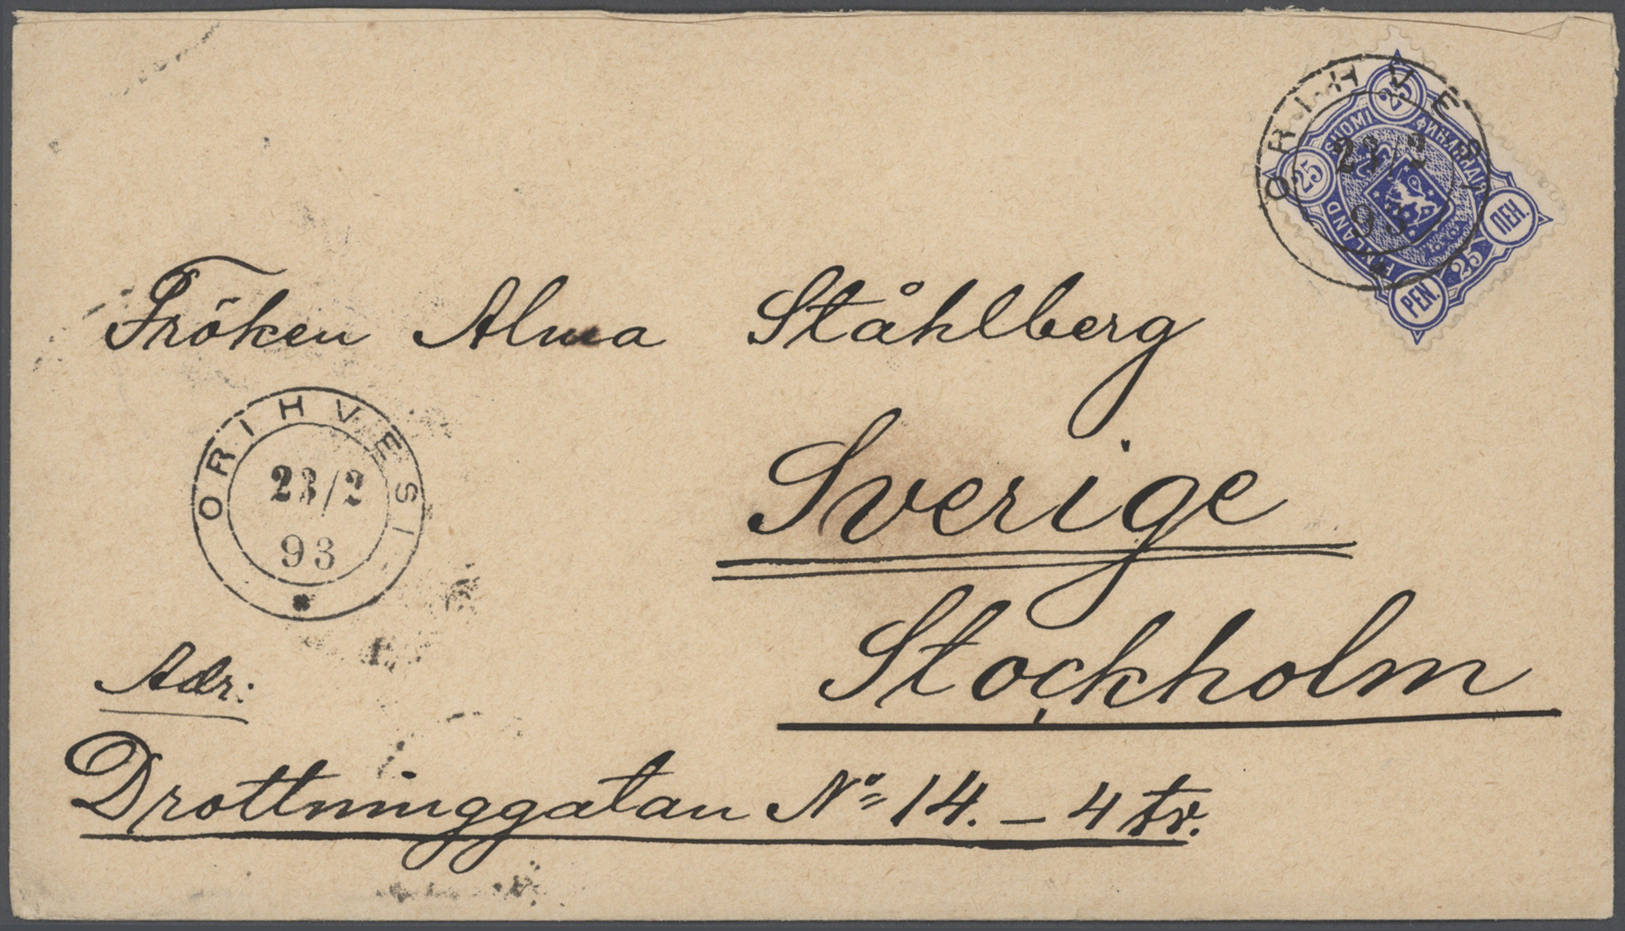 ORIHVESI
23/2
93
25
25
SUOMI
ФИНЛЯНДІЯ
FINLAND
25
ПЕН.
PEN.
Fröken Alma Ståhlberg
ORIHVESI
23/2
93
Sverige
Stockholm
Adr:
Drottninggatan No 14. – 4 tr.